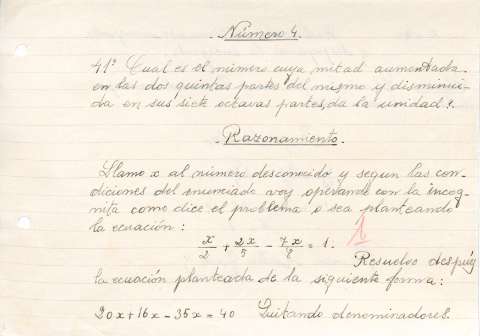 Número 4.
41º Cual es el número cuya mitad aumentada
en las dos quintas partes del mismo y disminui-
da en sus siete octavas partes, da la unidad?.
Razonamiento.
Llamo x al número desconocido y segun las con-
diciones del enunciado voy operando con la incog-
nita como dice el problema o sea planteando
la ecuación:
x/2 + 2x/5 - 7x/8 = 1.
Resuelvo después
la ecuación planteada de la siguiente forma:
20x+16x-35x=40 Quitando denominadores.